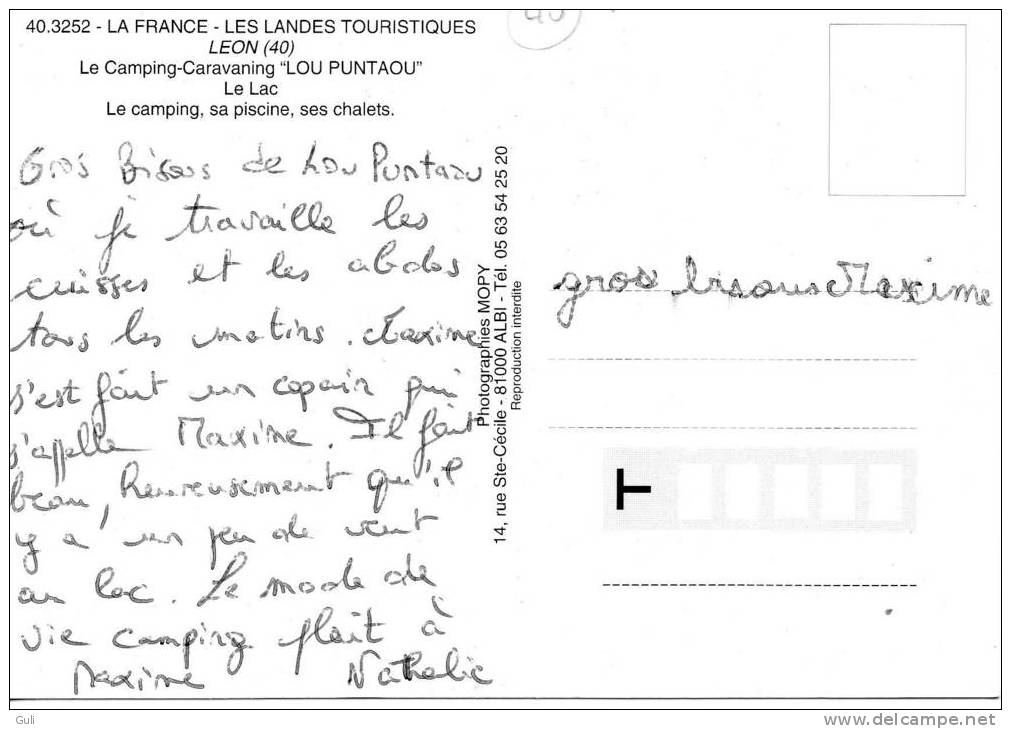 40.3252 - LA FRANCE - LES LANDES TOURISTIQUES
LEON (40)
Le Camping-Caravaning "LOU PUNTAOU"
Le Lac
Le camping, sa piscine, ses chalets.
40
Gros Bisous de Lou Puntaou
où je travaille les
cuisses et les abdos
tous les matins. Maxime
s'est fait un copain qui
s'appelle Maxime. Il fait
beau, heureusement qu'il
y a un peu de vent
au lac. Le mode de
vie camping plait à
Maxime Nathalie
Photographies MOPY
14, rue Ste-Cécile - 81000 ALBI - Tél. 05 63 54 25 20
Reproduction interdite
gros bisous Maxime
Guli
www.delcampe.net